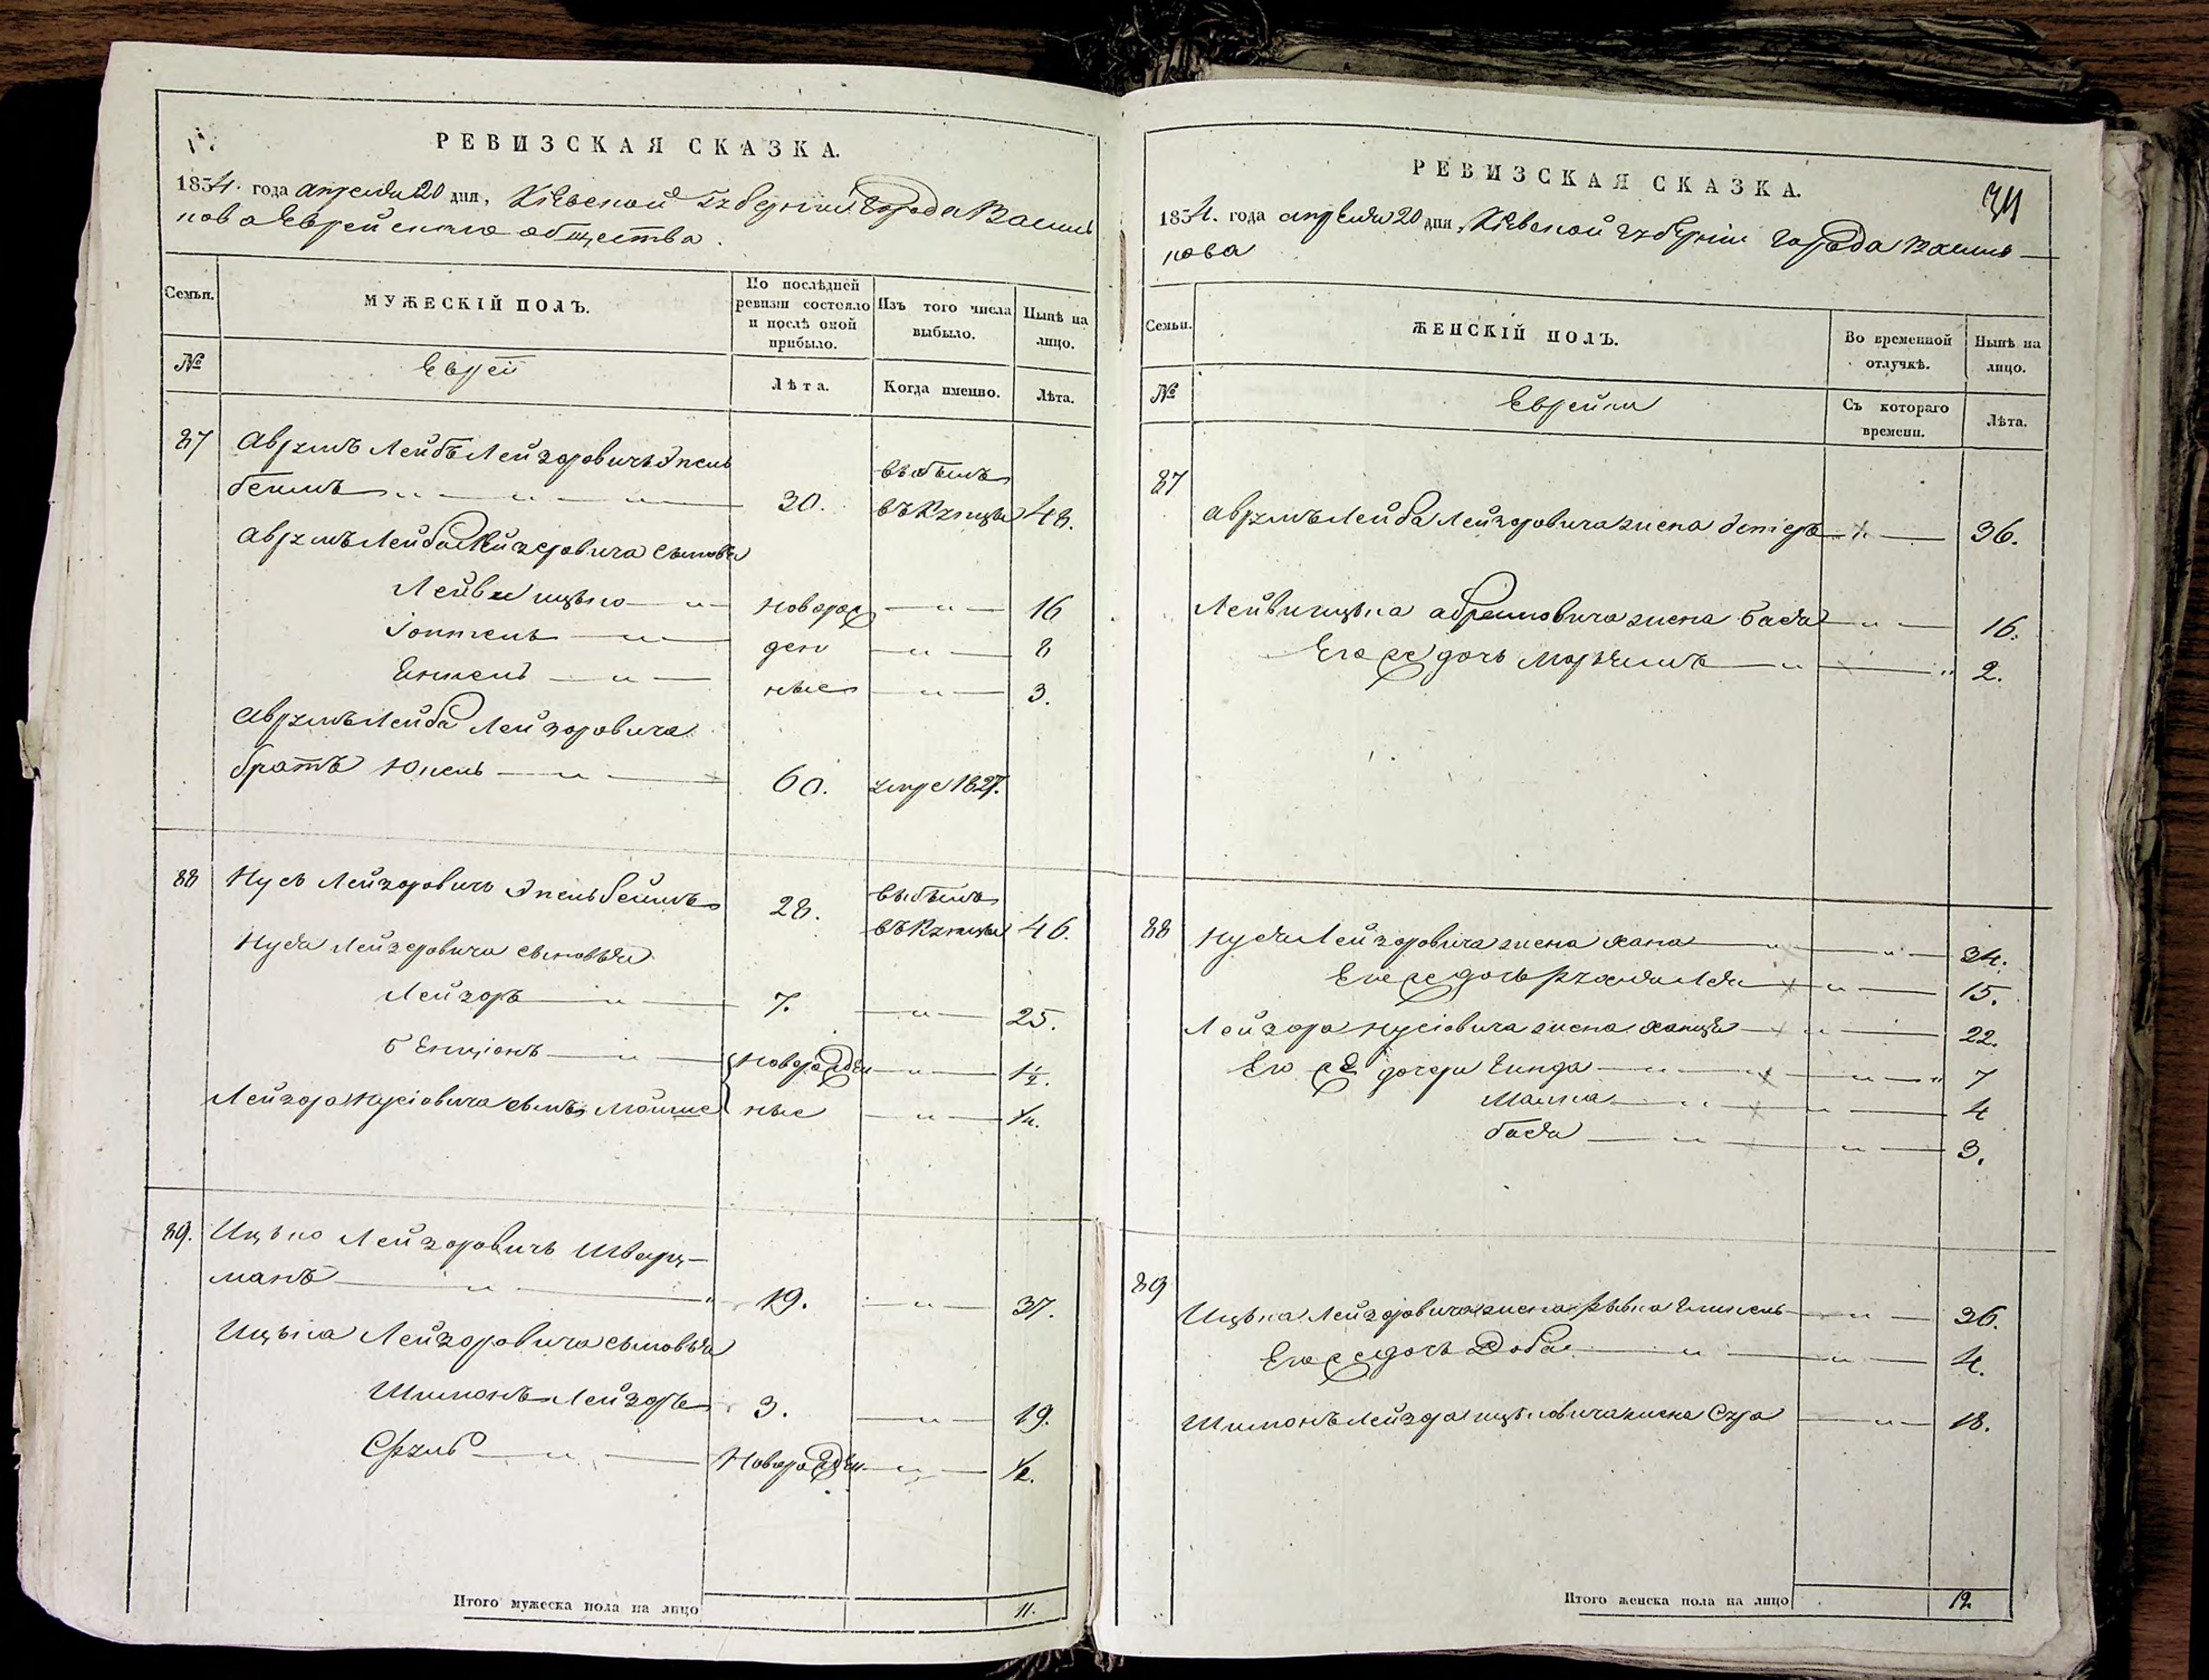 РЕВИЗСКАЯ СКАЗКА.
1834. года апреля 20 дня, Кіевской губерніи города Василь
кова Еврейскаго общества.
Семьи.
МУЖЕСКІЙ ПОЛЪ.
По послѣдней ревизіи состояло и послѣ оной прибыло.
Изъ того числа выбыло.
Нынѣ на лицо.
№
Евреи
Лѣта.
Когда именно.
Лѣта.
87 Аврумъ Лейбъ Лейзоровичъ
30. выбылъ 48.
Аврумъ Лейба Лейзеровича сыновья
Лейви Ицько — новорож — " — 16
— ден — " — 8
— ные — " — 3.
Аврумъ Лейба Лейзоровича
братъ — 60. умре 1827.
88 Нусь Лейзоровичъ
28. выбылъ 46.
Нуся Лейзеровича сыновья
Лейзоръ — 7. — " — 25.
Бенціонъ — новорожден — " — 1½.
Лейзора Нусіовича сынъ Мошие ные — " — ¼.
89. Ицько Лейзоровичъ Шварц-
манъ — 19. — " — 37.
Ицька Лейзоровича сыновья
Шимонъ Лейзоръ 3. — " — 19.
Сруль — Новорожден — " — ½.
Итого мужеска пола на лицо 11.
РЕВИЗСКАЯ СКАЗКА.
1834. года апрѣля 20 дня, Кіевской губерніи города Василь-
кова
Семьи.
ЖЕНСКІЙ ПОЛЪ.
Во временной отлучкѣ.
Нынѣ на лицо.
№
Еврейки
Съ котораго времени.
Лѣта.
87
Аврумъ Лейба Лейзоровича жена — 36.
Лейви Ицька Абрамовича жена Бася — " — 16.
Его же дочь — " — 2.
88 Нуся Лейзоровича жена Хана — " — 34.
Его же дочь — " — 15.
Лейзора Нусіовича жена — " — 22.
Его же дочери — " — 7
Малка — " — 4
Бася — " — 3.
89
Ицька Лейзоровича жена — " — 36.
Его же дочь Доба — " — 4.
Шимонъ Лейзора Ицьковича жена Сура — " — 18.
Итого женска пола на лицо 12